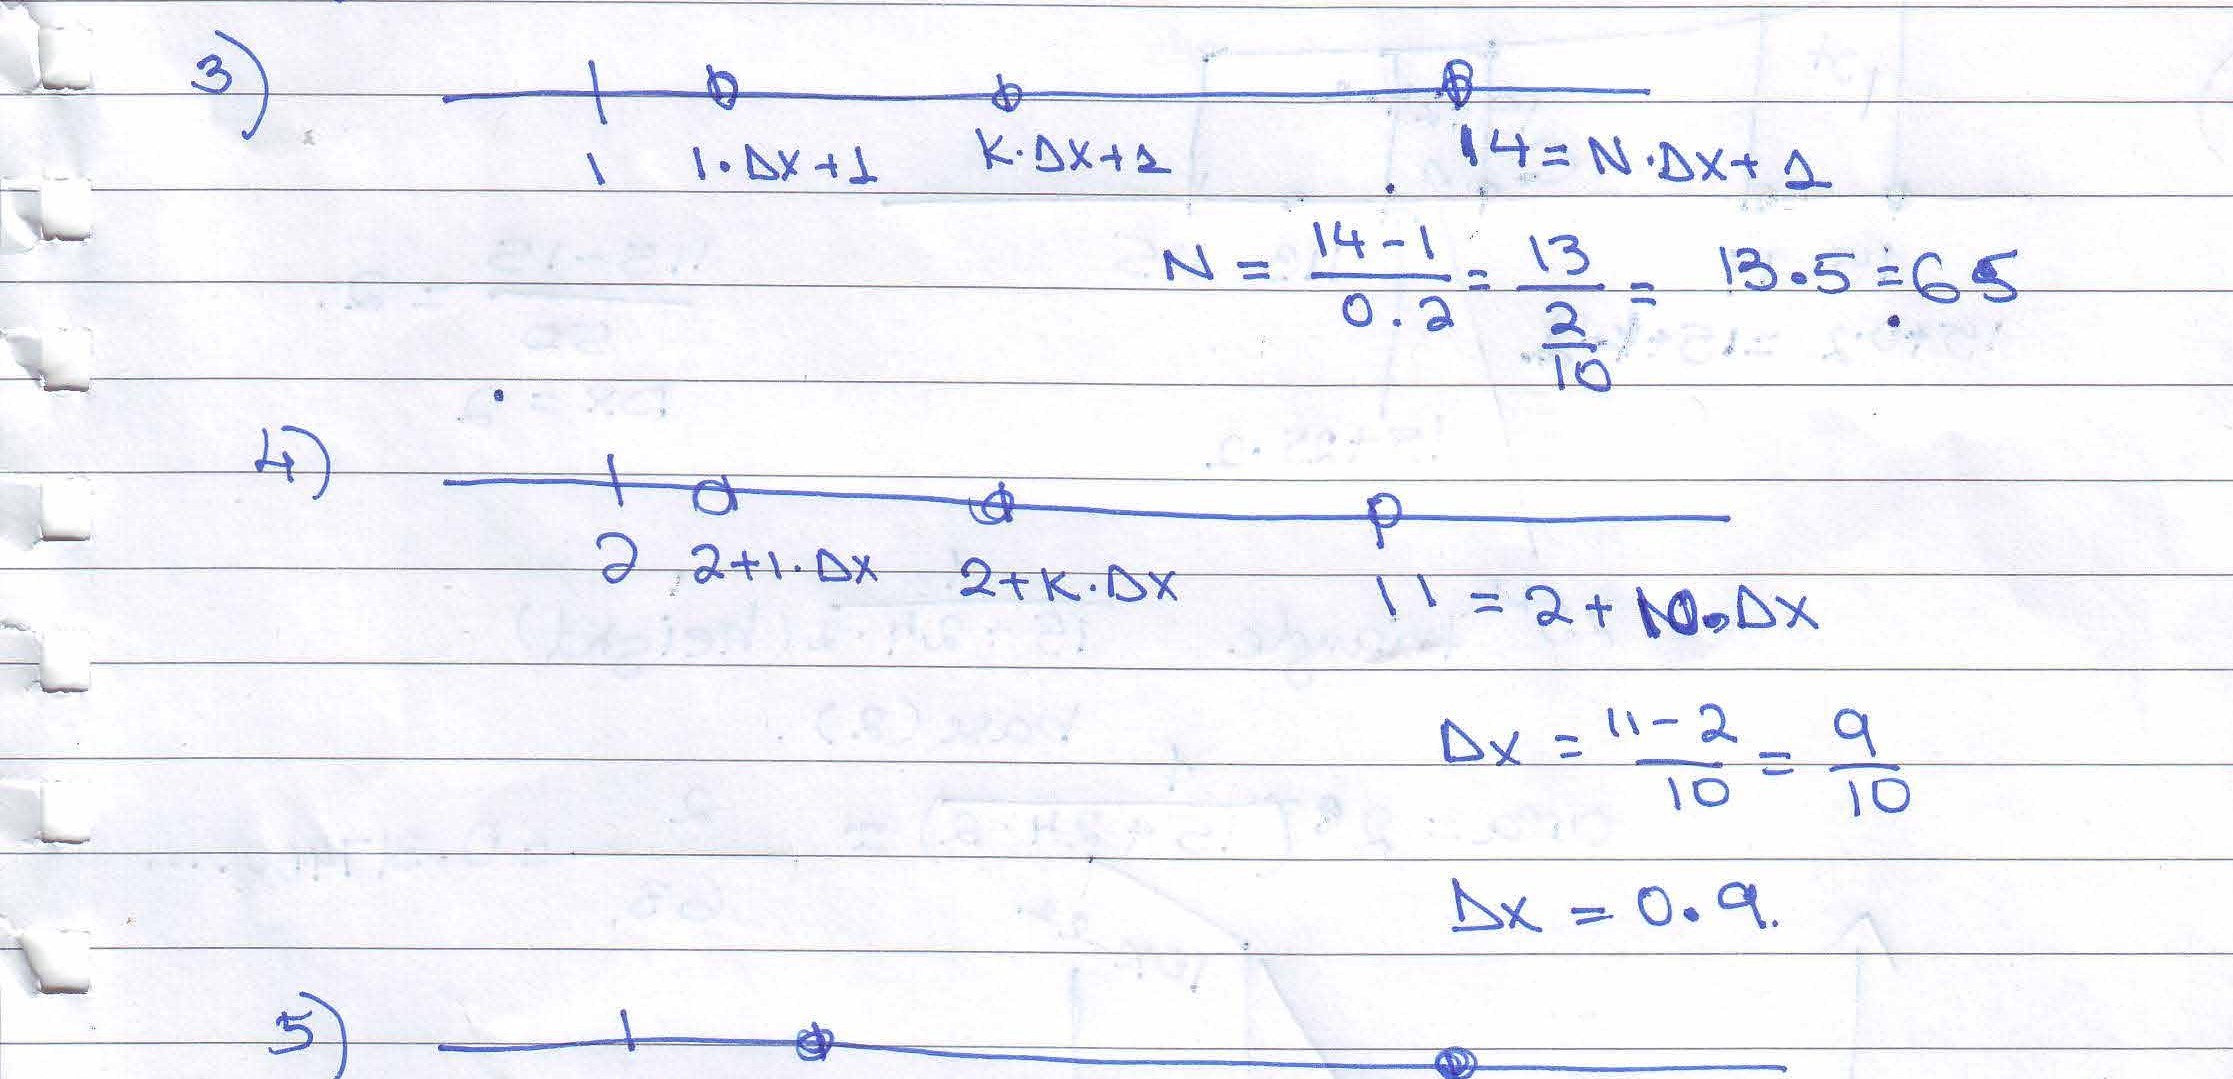 3)
1 1·Δx+1 K·Δx+1 14=N·Δx+1
N = \frac{14-1}{0.2} = \frac{13}{\frac{2}{10}} = 13·5=65
4)
2 2+1·Δx 2+K·Δx 11=2+10·Δx
Δx = \frac{11-2}{10} = \frac{9}{10}
Δx = 0.9.
5)